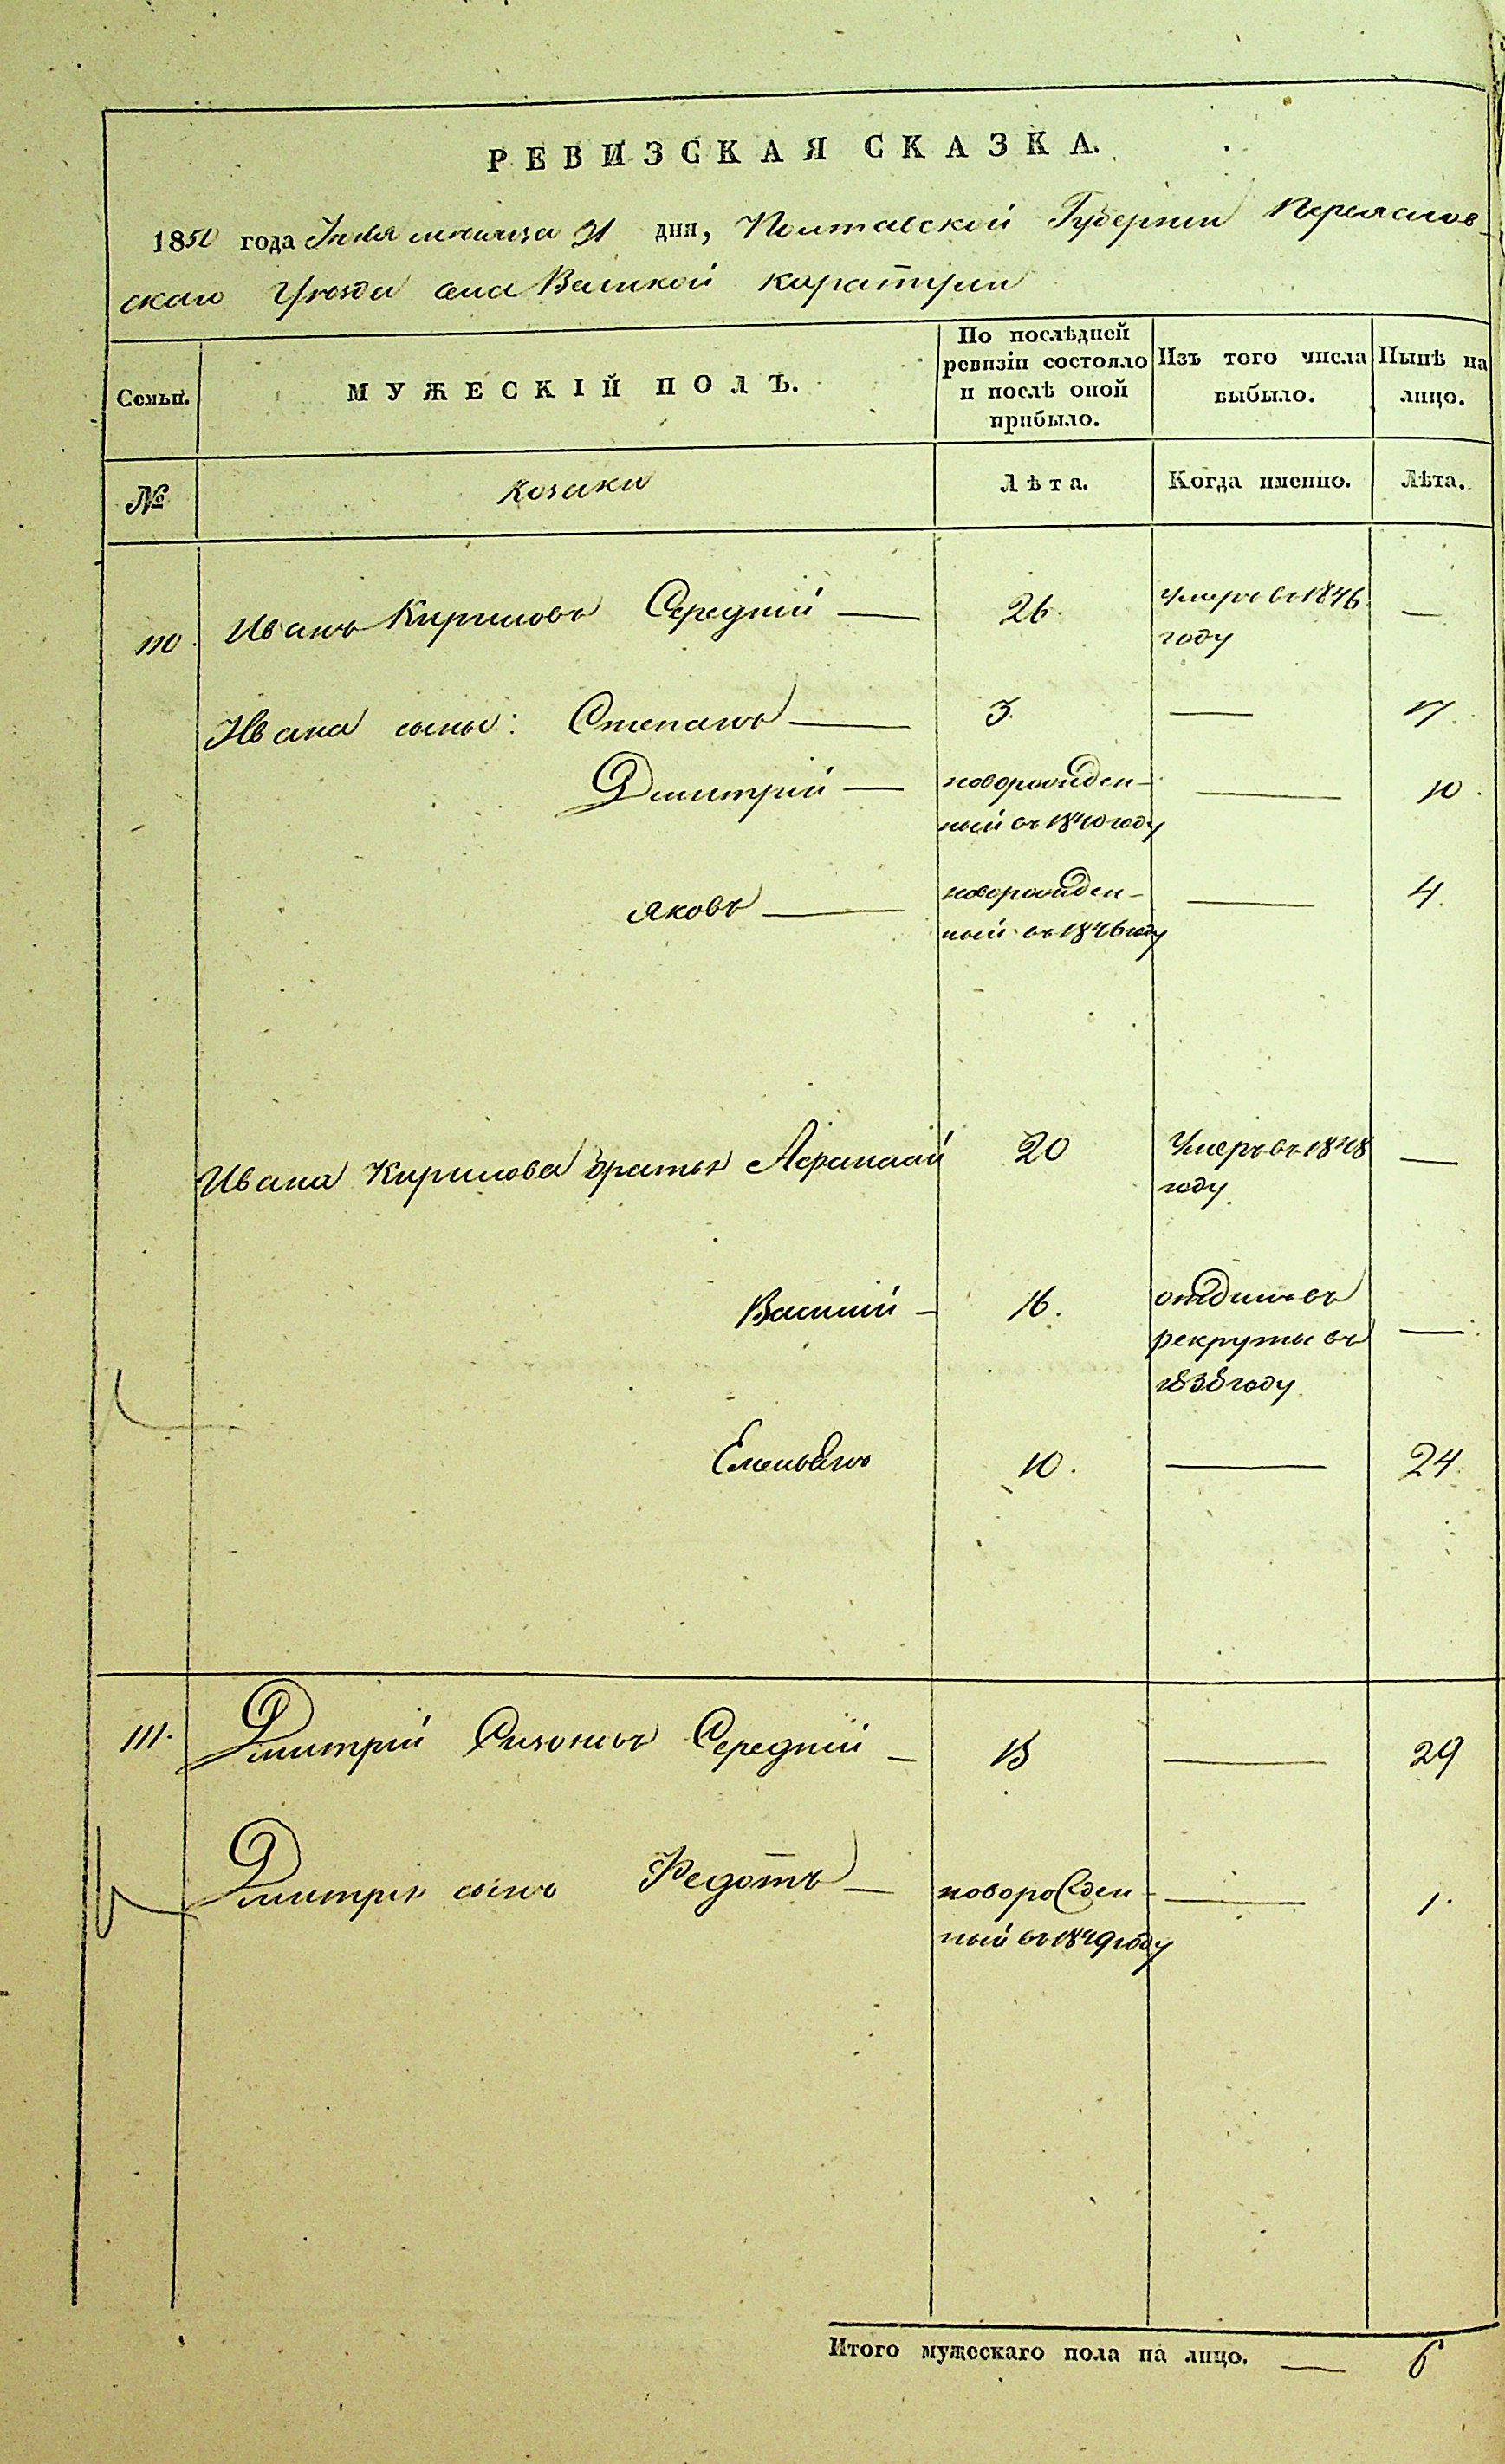 РЕВИЗСКАЯ СКАЗКА.
1850 года Іюля месяца 31 дня, Полтавской Губерніи Переяслов-
скаго Уезда села Великой Каратули
Семьи.
МУЖЕСКІЙ ПОЛЪ.
По послѣдней
ревизіи состояло
и послѣ оной
прибыло.
Изъ того числа
выбыло.
Нынѣ на
лицо.
№
Козаки
Лѣта.
Когда именно.
Лѣта.
110. Иванъ Кириловъ Середній — 26. умеръ въ 1846 —
году
Ивана сыны: Степанъ — 3. — 17.
Дмитрій — новорожден- — 10.
ный въ 1840 году
Яковъ — новорожден- — 4.
ный въ 1846 году
Ивана Кирилова братья Афанасій 20 Умеръ въ 1848 —
году
Василій — 16. отданъ въ
рекруты въ —
1838 году
Емельянъ 10. — 24.
111. Дмитрій Сизоновъ Середній — 15 — 29
Дмитрія сынъ Федотъ — новорожден- — 1.
ный въ 1849 году
Итого мужескаго пола на лицо. — 6